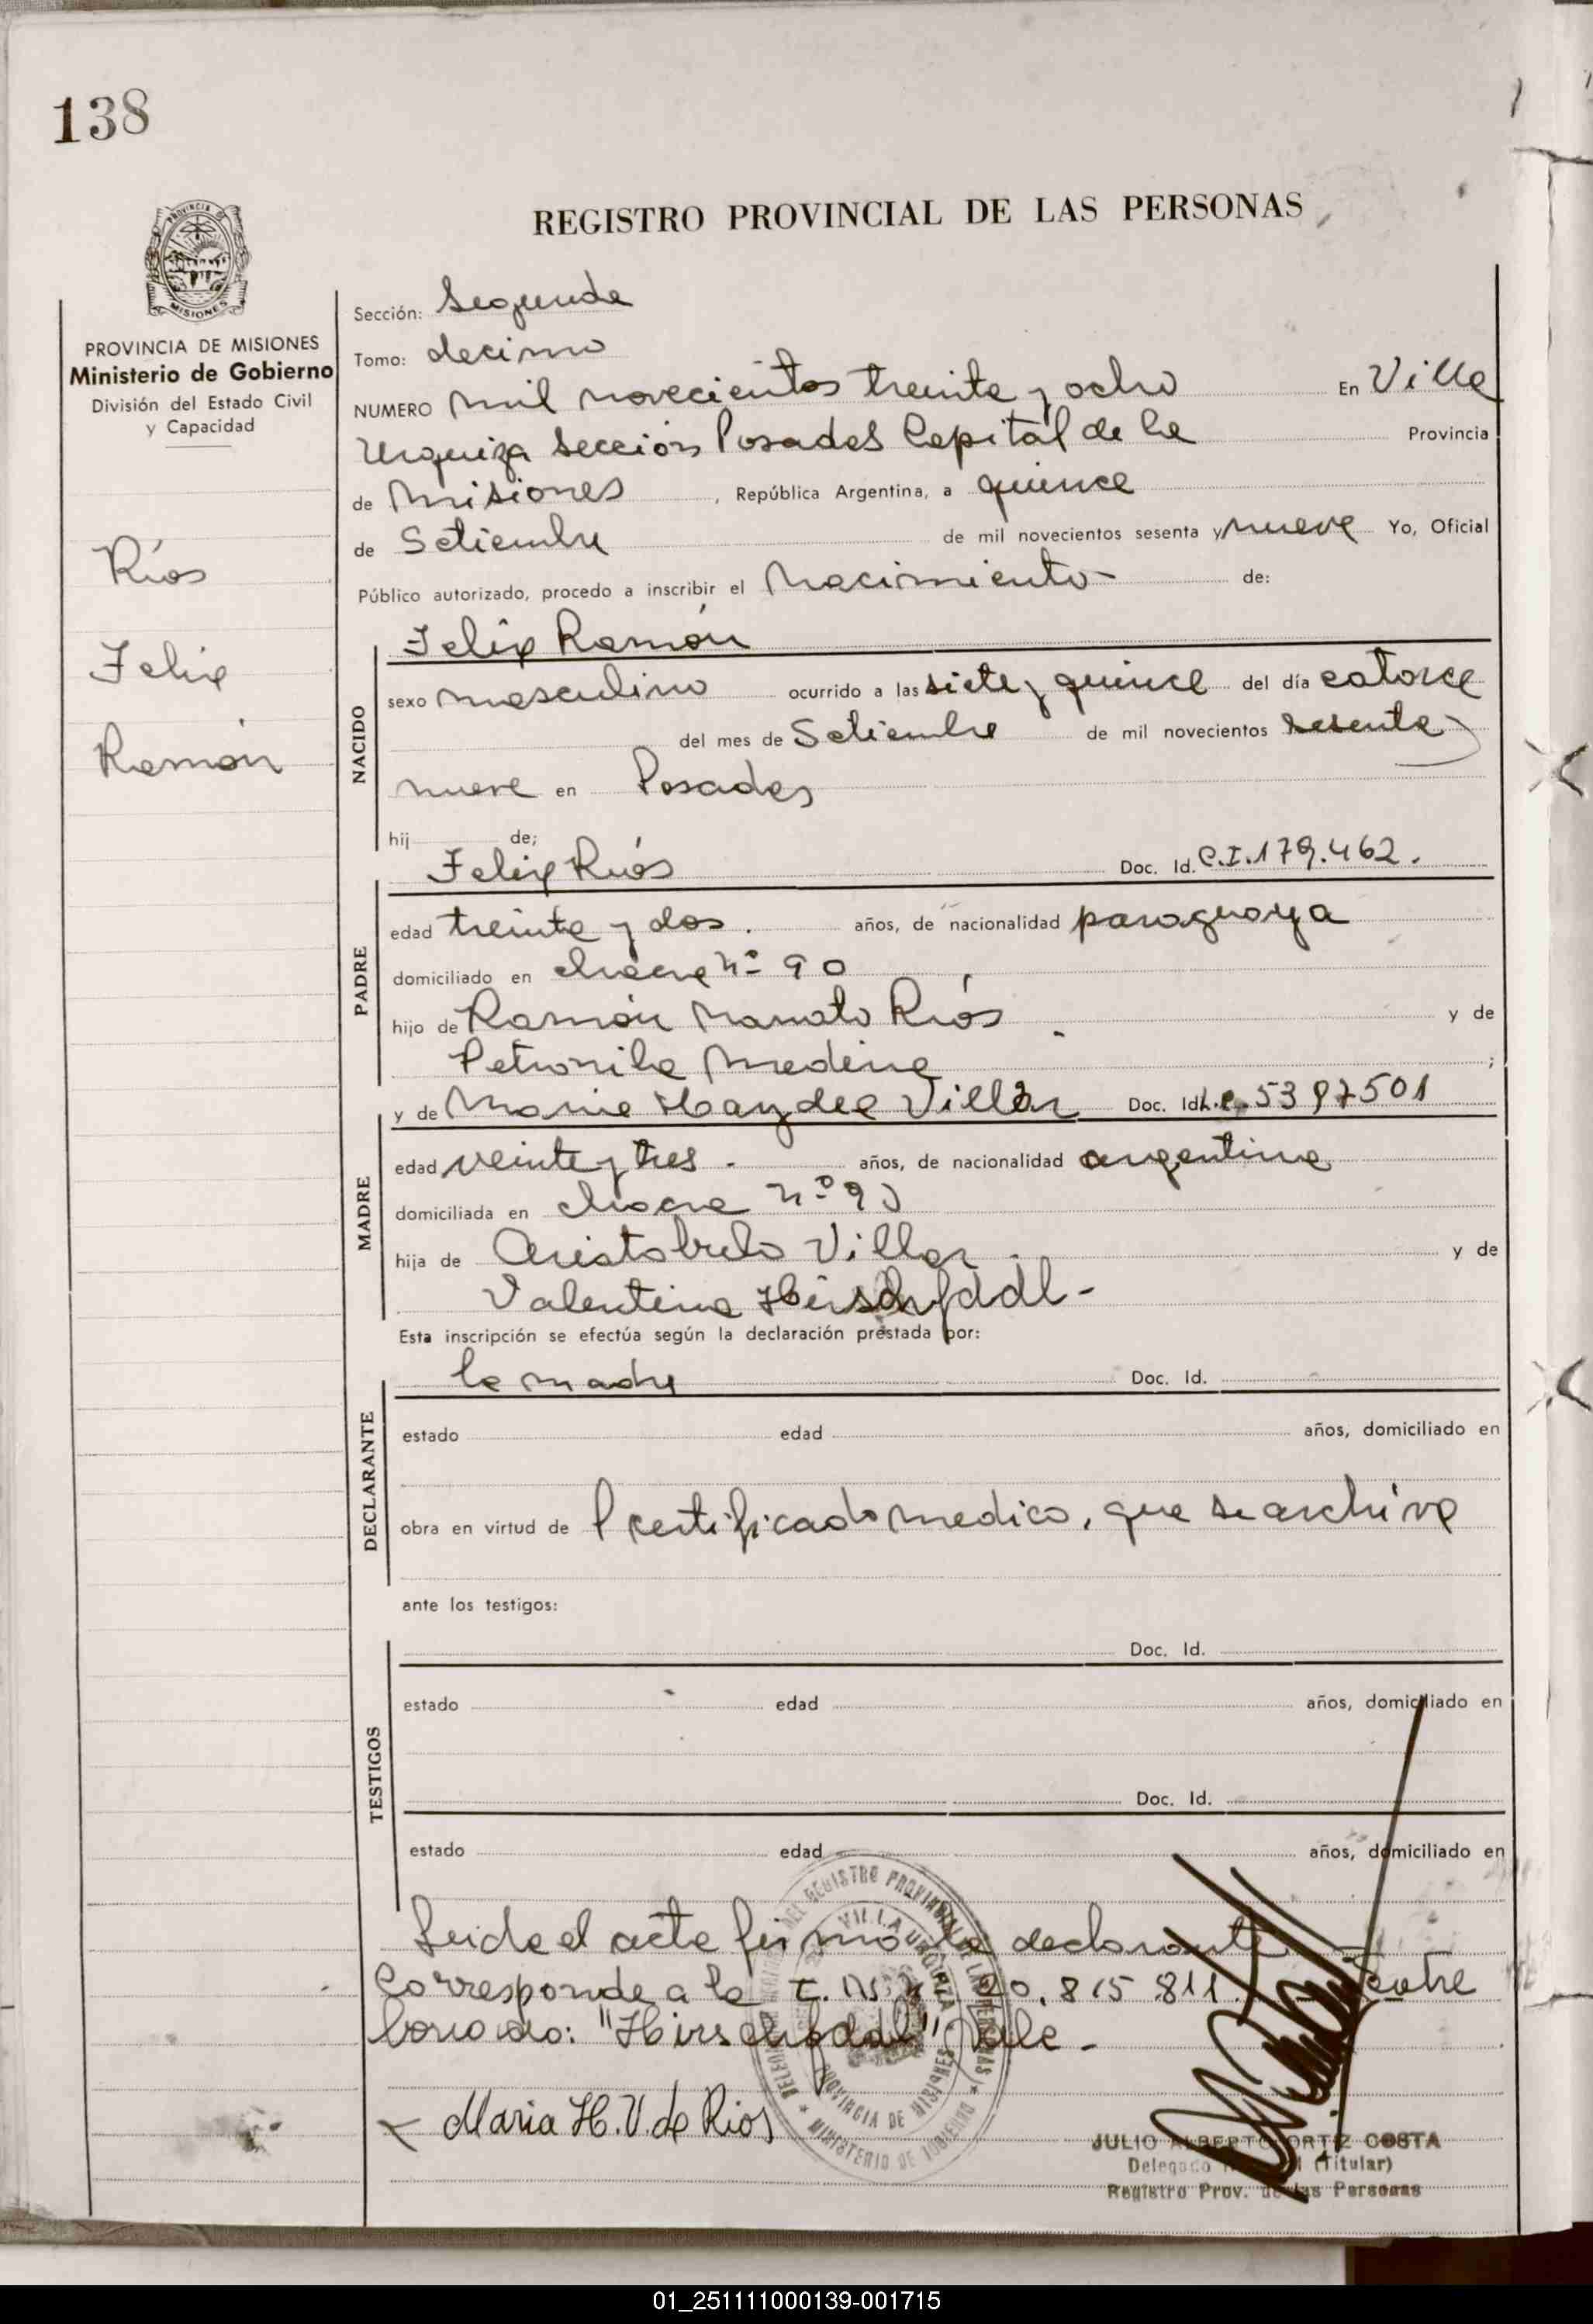 138
REGISTRO PROVINCIAL DE LAS PERSONAS
PROVINCIA DE MISIONES
Ministerio de Gobierno
División del Estado Civil
y Capacidad
Ríos
Felix
Ramón
Sección: Segunda
Tomo: decimo
NUMERO mil novecientos treinta y ocho En Villa
Urquiza Sección Posadas Capital de la Provincia
de Misiones, República Argentina, a quince
de Setiembre de mil novecientos sesenta y nueve Yo, Oficial
Público autorizado, procedo a inscribir el Nacimiento- de:
NACIDO
Felix Ramón
sexo masculino ocurrido a las siete y quince del día catorce
del mes de Setiembre de mil novecientos sesenta y
nueve en Posadas
hij de;
PADRE
Felix Ríos Doc. Id. C.I.179.462.
edad treinta y dos. años, de nacionalidad paraguaya
domiciliado en chacra nº 90
hijo de Ramón Ríos y de
Petronila Medina ;
MADRE
y de Maria Haydee Villar Doc. Id. L.C. 5397501
edad veinte y tres. años, de nacionalidad argentina
domiciliada en chacra nº 90
hija de Aristobulo Villar. y de
Valentina
Esta inscripción se efectúa según la declaración prestada por:
DECLARANTE
la madre Doc. Id.
estado edad años, domiciliado en
obra en virtud de l certificado medico, que se archiva
ante los testigos:
TESTIGOS
Doc. Id.
estado edad años, domiciliado en
Doc. Id.
estado edad años, domiciliado en
Leida el acta firmó la declarante
Corresponde a la 20.815.811.
Vale-
Maria H. V. de Rios
VILLA URQUIZA
PROVINCIA DE MISIONES
MINISTERIO DE GOBIERNO
JULIO ALBERTO ORTIZ COSTA
Delegado (Titular)
Registro Prov. de las Personas
01_251111000139-001715